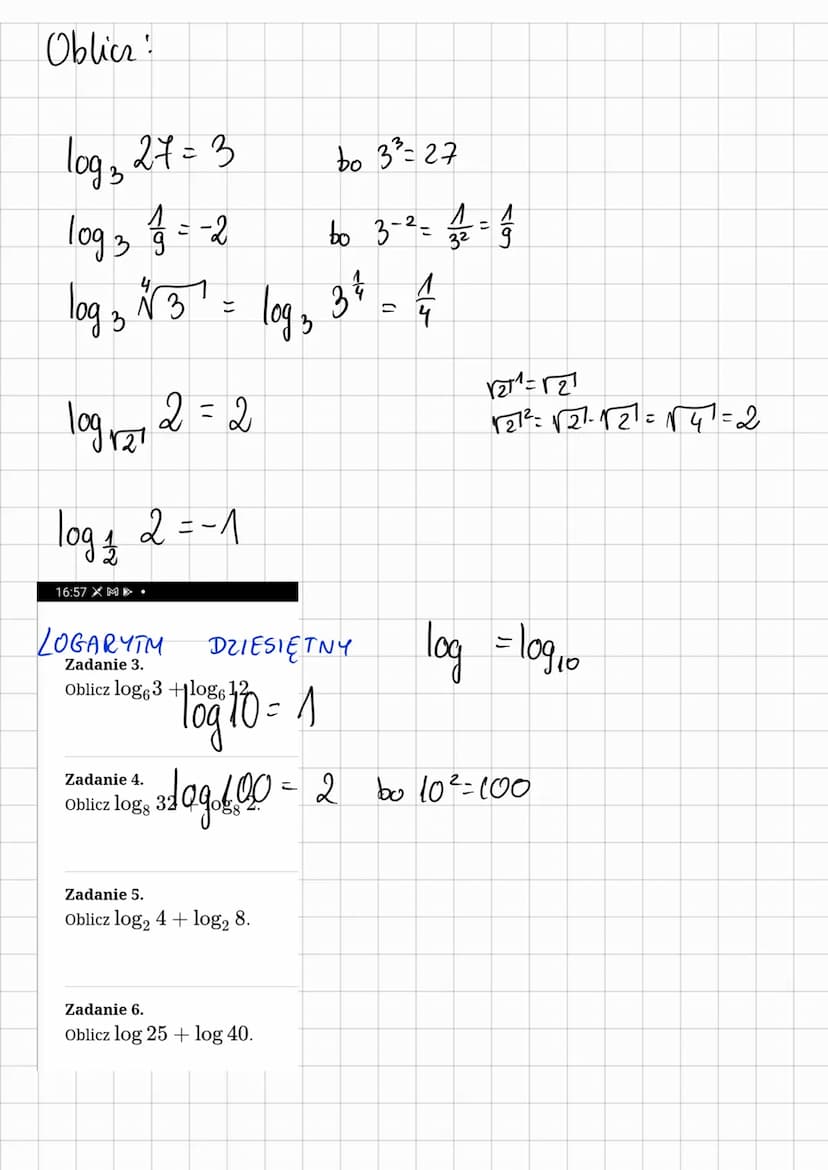 Oblicz:
log₃ 27 = 3 bo 3³ = 27
log₃ 1/9 = -2 bo 3⁻² = 1/3² = 1/9
log₃ ⁴√3 = log₃ 3^(1/4) = 1/4
log_√2 2 = 2
√2¹ = √2
√2² = √2 · √2 = √4 = 2
log_(1/2) 2 = -1
16:57
LOGARYTM DZIESIĘTNY log = log₁₀
Zadanie 3.
Oblicz log₆ 3 + log₆ 12
log 10 = 1
Zadanie 4.
Oblicz log₈ 32 log₈ 2.
log 100 = 2 bo 10² = 100
Zadanie 5.
Oblicz log₂ 4 + log₂ 8.
Zadanie 6.
Oblicz log 25 + log 40.